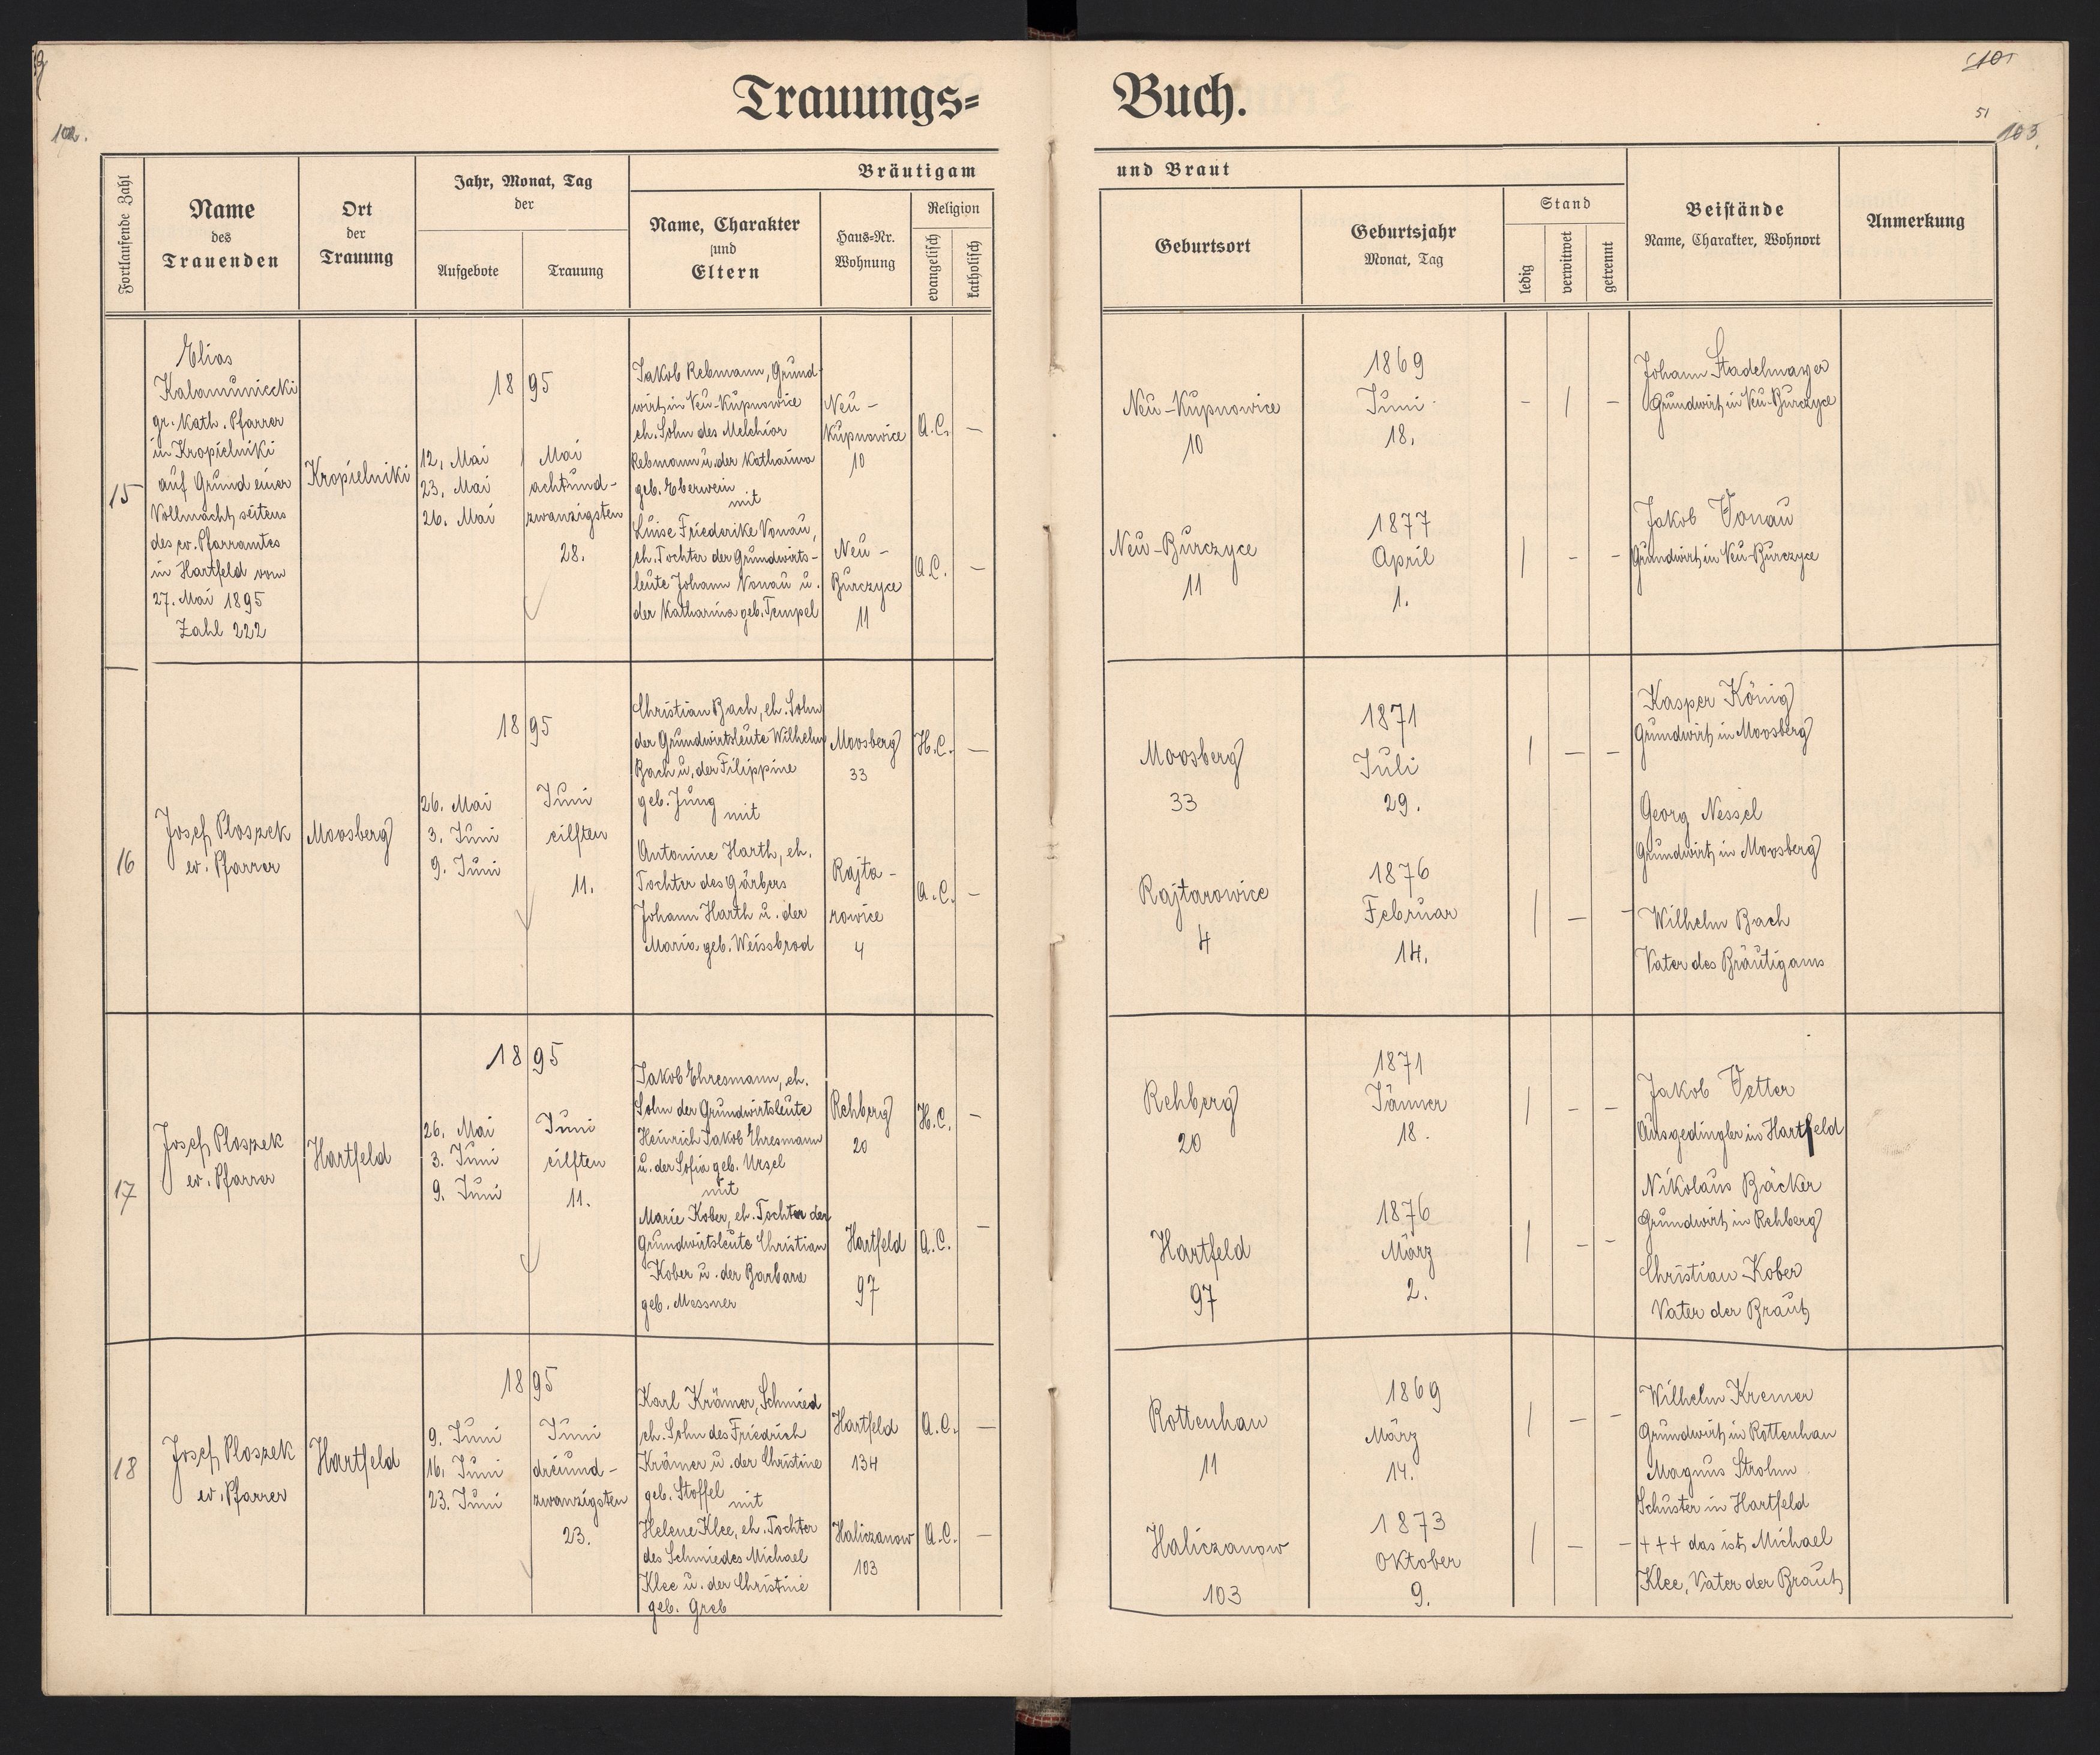 102.
Trauungs= Buch.
101
51
103.
Fortlaufende Zahl
Name
des
Trauenden
Ort
der
Trauung
Jahr, Monat, Tag
der
Aufgebote
Trauung
Bräutigam
Name, Charakter
und
Eltern
Haus=Nr.
Wohnung
Religion
evangelisch
katholisch
und Braut
Geburtsort
Geburtsjahr
Monat, Tag
Stand
ledig
verwitwet
getrennt
Beistände
Name, Charakter, Wohnort
Anmerkung
15
Elias
Kalamuniecki
gr. kath. Pfarrer
in Kropielniki
auf Grund einer
Vollmacht seitens
des ev. Pfarramtes
in Hartfeld vom
27. Mai 1895
Zahl 222
Kropielniki
1895
12. Mai
23. Mai
26. Mai
Mai
achtund-
zwanzigsten
28.
Jakob Rebmann, Grund-
wirt in Neu-Kupnowice
eh. Sohn des Melchior
Rebmann u. der Katharina
geb. Eberwein
mit
Luise Friederike Vonau,
eh. Tochter der Grundwirts-
leute Johann Vonau u.
der Katharina geb. Tempel
Neu-
Kupnowice
10
Neu-
Burczyce
11
A.C. —
A.C. —
Neu-Kupnowice
10
Neu-Burczyce
11
1869
Juni
18.
1877
April
1.
- / -
/ - -
Johann Stadelmayer
Grundwirt in Neu-Burczyce
Jakob Vonau
Grundwirt in Neu-Burczyce
16
Josef Ploszek
ev. Pfarrer
Moosberg
1895
26. Mai
3. Juni
9. Juni
Juni
eilften
11.
Christian Bach, eh. Sohn
der Grundwirtsleute Wilhelm
Bach u. der Filippine
geb. Jung
mit
Antonine Harth, eh.
Tochter des Gärbers
Johann Harth u. der
Maria geb. Weissbrod
Moosberg
33
Rajta-
rowice
4
H.C. —
A.C. —
Moosberg
33
Rajtarowice
4
1871
Juli
29.
1876
Februar
14.
/ — —
/ — -
Kasper König
Grundwirt in Moosberg
Georg Nessel
Grundwirt in Moosberg
Wilhelm Bach
Vater des Bräutigams
17
Josef Ploszek
ev. Pfarrer
Hartfeld
1895
26. Mai
3. Juni
9. Juni
Juni
eilften
11.
Jakob Ehresmann, eh.
Sohn der Grundwirtsleute
Heinrich Jakob Ehresmann
u. der Sofia geb. Ursel
mit
Marie Kober, eh. Tochter der
Grundwirtsleute Christian
Kober u. der Barbara
geb. Messner
Rehberg
20
Hartfeld
97
H.C. —
A.C. —
Rehberg
20
Hartfeld
97
1871
Jänner
18.
1876
März
2.
/ - -
/ - -
Jakob Vetter
Ausgedingler in Hartfeld
Nikolaus Bäcker
Grundwirt in Rehberg
Christian Kober
Vater der Braut
18
Josef Ploszek
ev. Pfarrer
Hartfeld
1895
9. Juni
16. Juni
23. Juni
Juni
dreiund-
zwanzigsten
23.
Karl Krämer, Schmied
eh. Sohn des Friedrich
Krämer u. der Christine
geb. Stoffel
mit
Helene Klee, eh. Tochter
des Schmiedes Michael
Klee u. der Christine
geb. Greb
Hartfeld
134
Haliczanow
103
A.C. —
A.C. —
Rottenhan
11
Haliczanow
103
1869
März
14.
1873
Oktober
9.
/ — -
/ - -
Wilhelm Kremer
Grundwirt in Rottenhan
Magnus Strohm
Schuster in Hartfeld
+++ das ist Michael
Klee, Vater der Braut